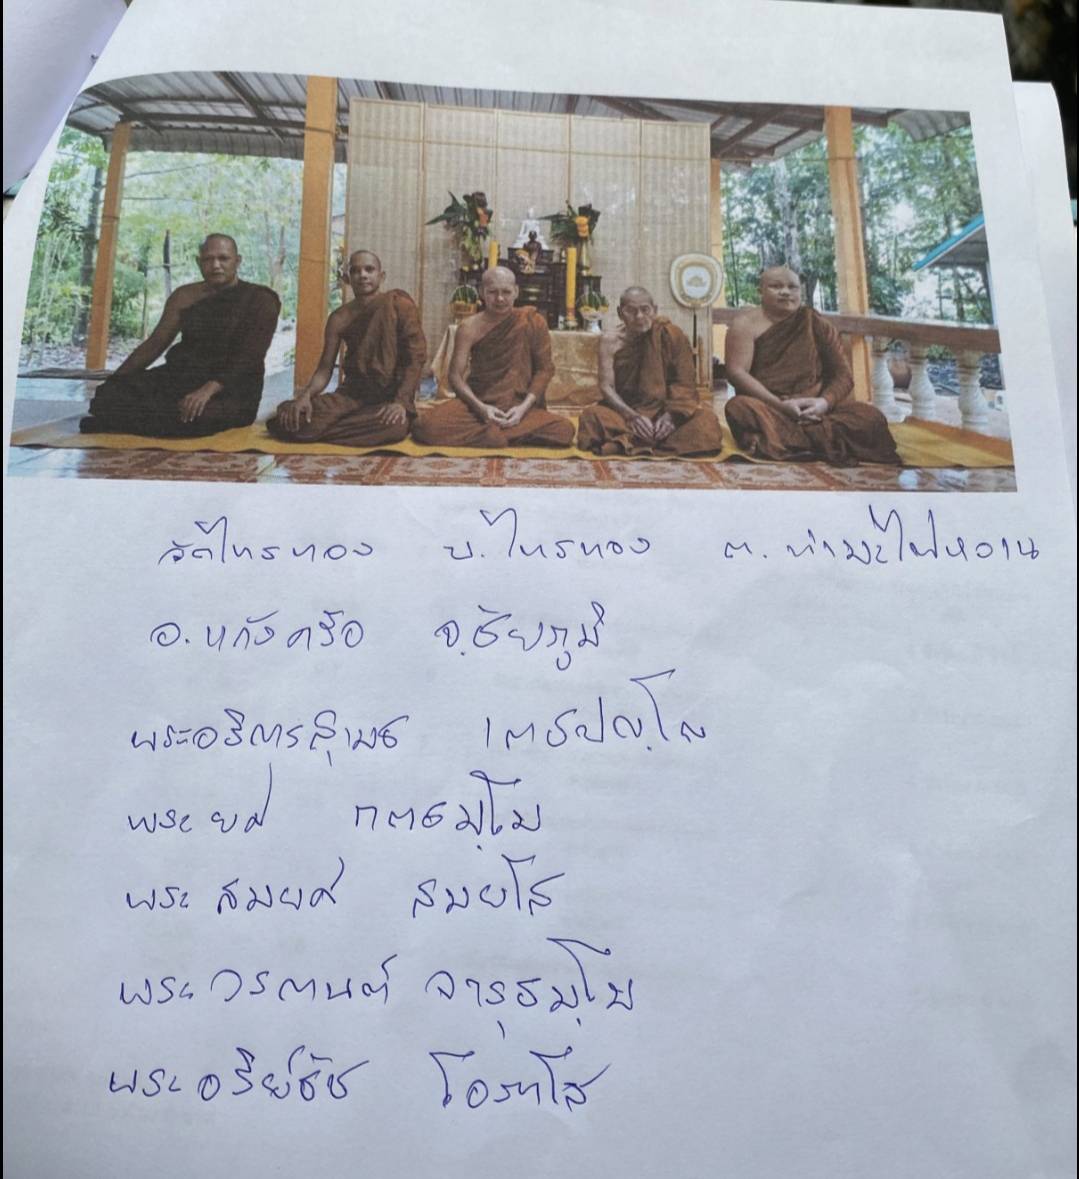 วัดไทรทอง บ.ไทรทอง ต.ท่ามะไฟหวาน
อ.แก้งคร้อ จ.ชัยภูมิ
พระอธิการสุเมธ เตชปญฺโญ
พระยศ กตธมฺโม
พระ สมยศ สมยโส
พระวรกานต์ จารุธมฺโม
พระอริย์ธัช โอภาโส